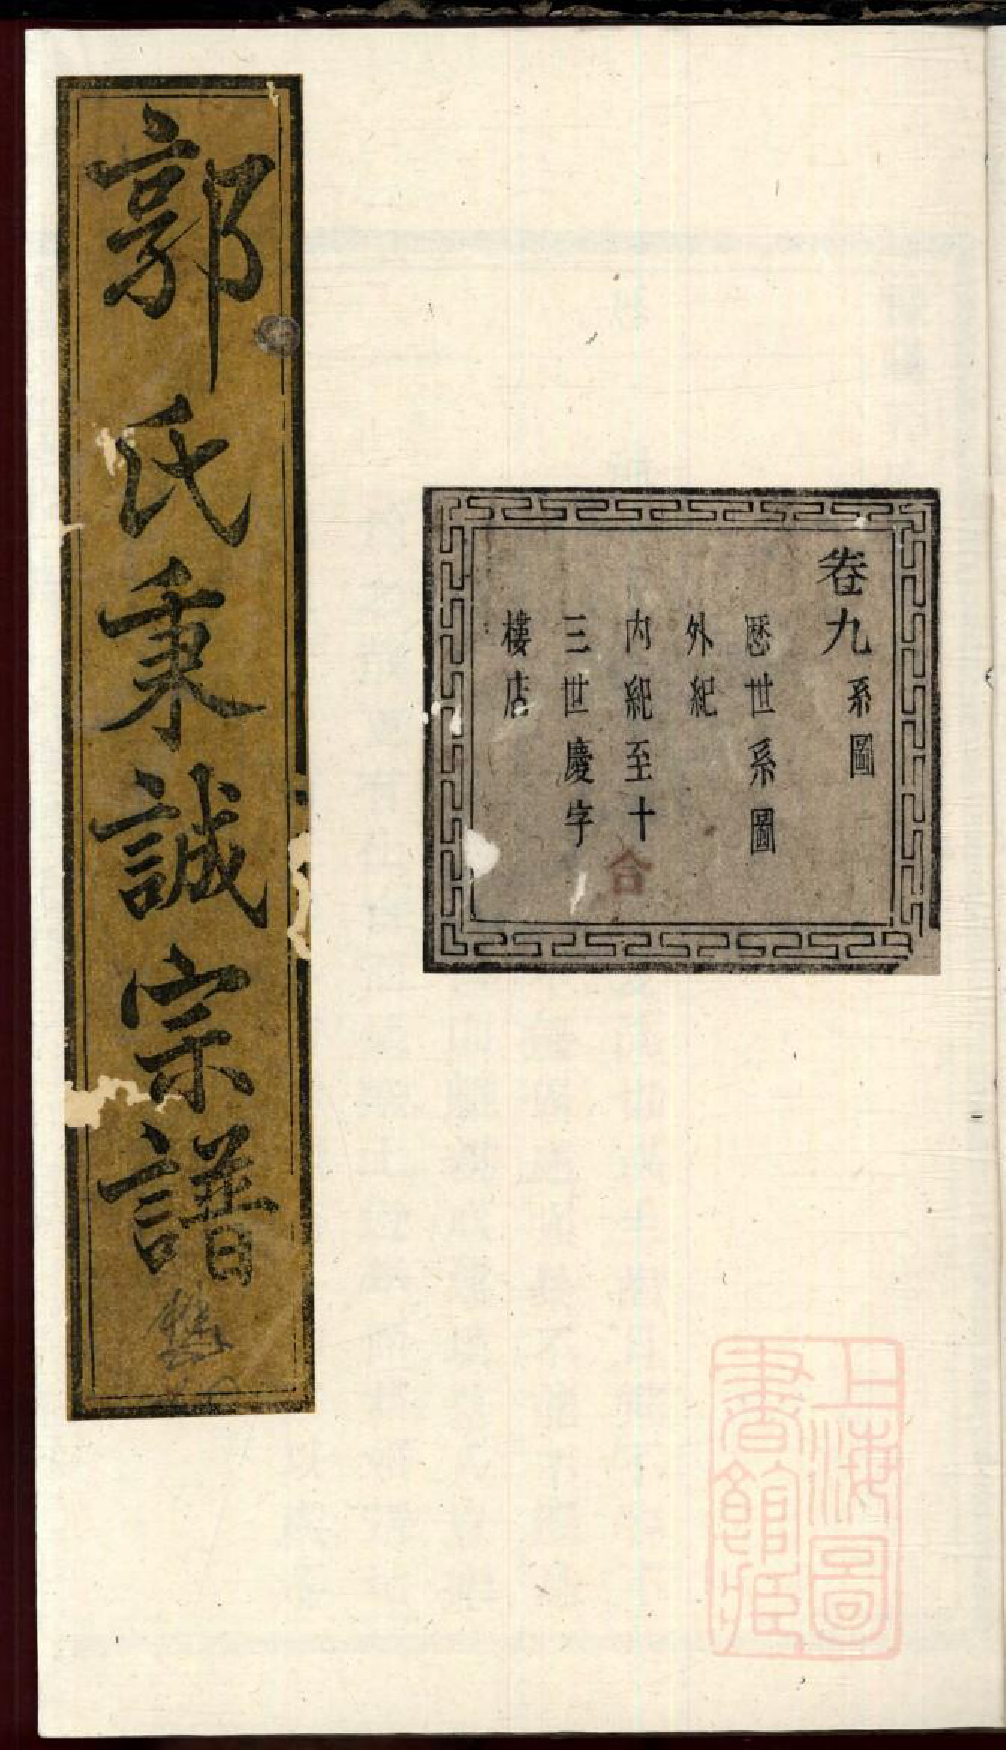 郭氏秉誠宗譜
卷九系圖
歷世系圖
外紀
內紀至十
三世慶字
樓店
合
上海圖
書館藏